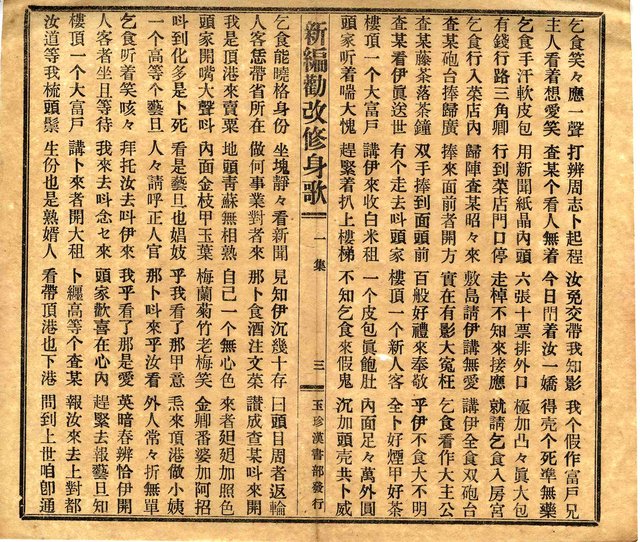 乞食笑々應一聲 打辨周志卜起程 汝免交帶我知影 我个假作富戶兄
主人看着想愛笑 查某个看人無着 今日門着汝一嬌 得壳个死準無藥
乞食手汗軟皮包 用新聞紙晶內頭 六張十票排外口 極加凸々眞大包
有錢行路三角卿 行到菜店門口停 走棹不知來接應 就請乞食入房宮
乞食行入菜店內 歸陣查某昭々來 敷島請伊講無愛 伊全食双砲台
查某砲台捧歸廣 捧來面前者開方 實在有影大冤枉 乞食看作大主公
查某藤茶落茶鐘 双手捧到面頭前 百般好禮來奉敬 乎伊不食大不明
查某看伊眞送世 有个走去呌頭家 樓頂一个新人客 全卜好煙甲好茶
樓頂一个大富戶 講伊來收白米租 一个皮包眞飽肚 內面足々萬外圓
頭家听着喘大愧 趕緊着扒上樓梯 不知乞食來假鬼 沉加頭壳共卜威
新編勸改修身歌 一集 三 玉珍漢書部發行
乞食能曉格身份 坐塊靜々看新聞 見知伊沉幾十存 曰頭目周者返輪
人客恁帶省所在 做何事業對者來 那卜食酒注文菜 讚成查某呌來開
我是頂港來賣粟 地頭靑蘇無相熟 自己一个無心色 來者廻廻加照色
頭家開嘴大聲呌 內面金枝甲玉葉 梅蘭菊竹老梅笑 金卿番婆加阿招
呌到化多是卜死 看是藝旦也娼妓 乎我看了那甲意 來頂港做小姨
一个高等个藝旦 人々請呼正人官 那卜呌來乎汝看 外人常々折無單
乞食听着笑咳々 拜托汝去呌伊來 我乎看了那是愛 英暗春辨恰伊開
人客者坐且等待 我來去呌念七來 頭家歡喜在心內 趕緊去報藝旦知
樓頂一个大富戶 講卜來者開大租 卜纏高等个查某 報汝來去上對都
汝道等我梳頭鬃 生份也是熟婿人 看帶頂港也下港 問到上世咱卽通